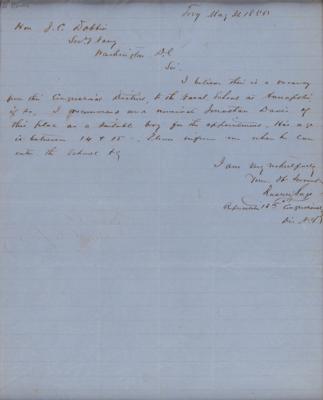 Troy May 21 1855
Hon J. C. Dobbin
Sec. of Navy
Washington D.C
Sir
I believe there is a vacancy
from this Congressional District, to the Naval School at Annapolis
if so, I recommend and nominate Jonathan Davis of
this place as a suitable boy for the appointment. His age
is between 14 & 15. Please inform me when he can
enter the School &c
I am very respectfully
Your Ob Servant
Russell Sage
Representative 13th Congressional
Dis. N.Y.